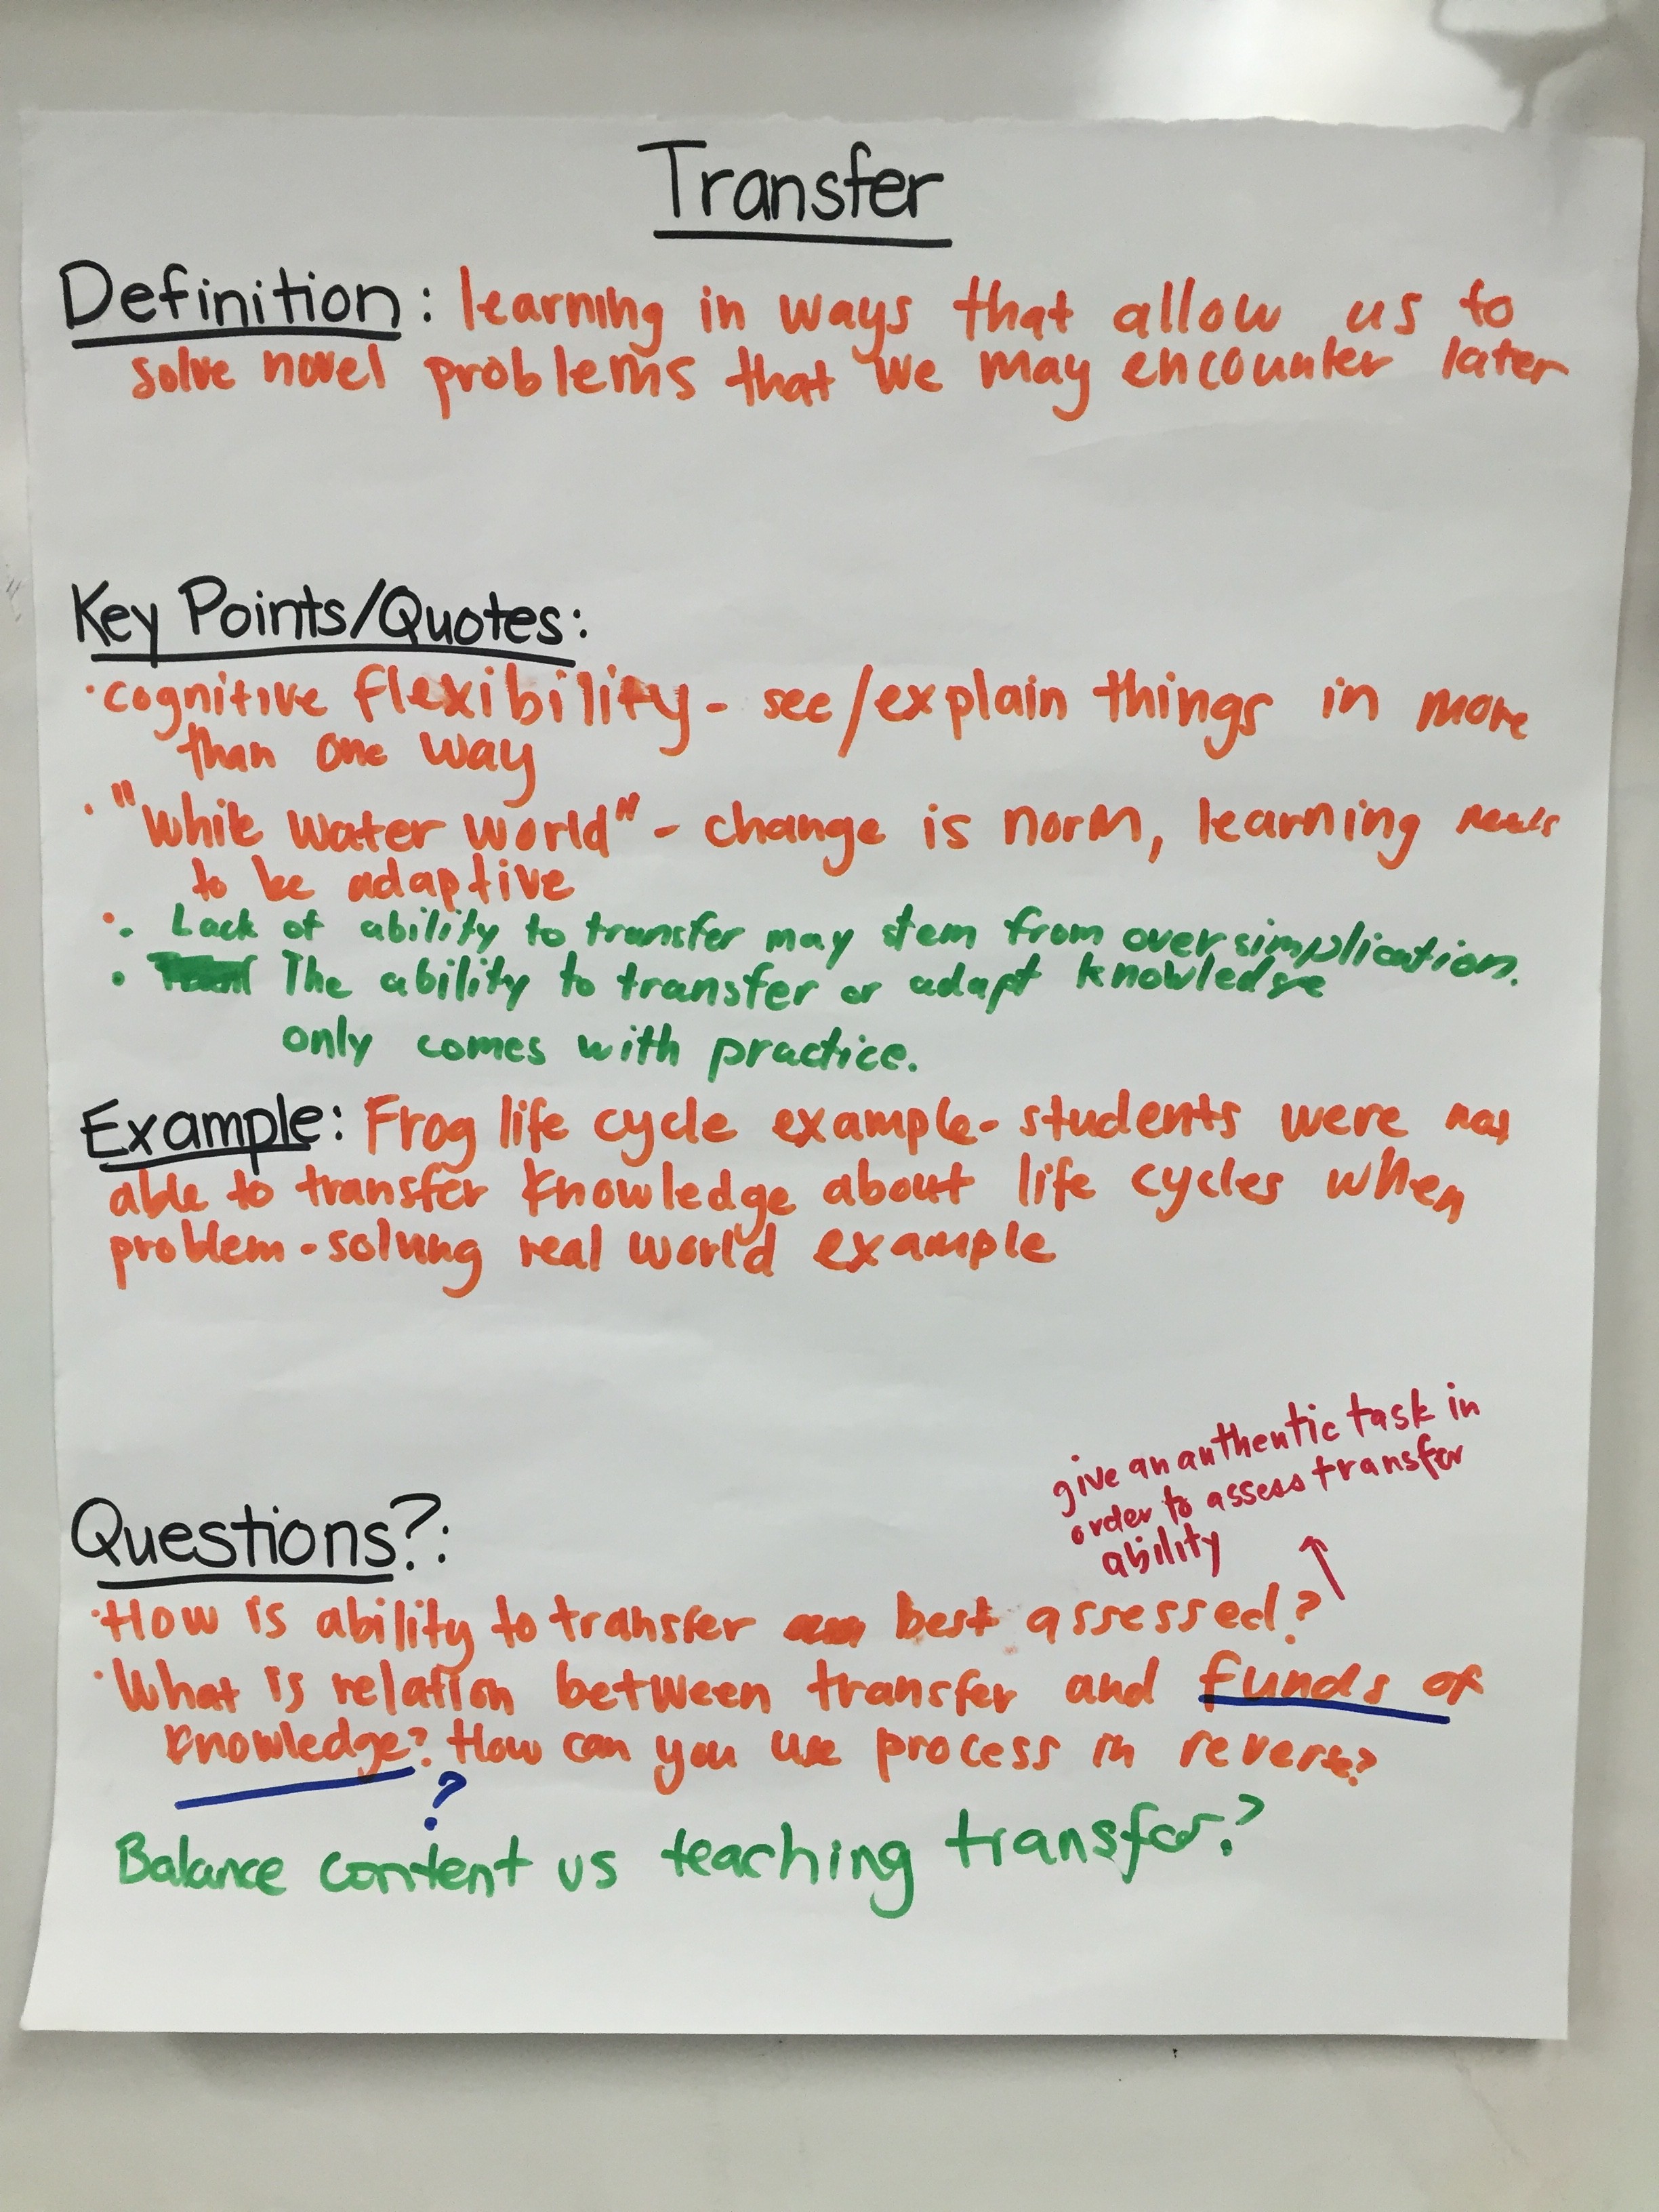 Transfer
Definition: learning in ways that allow us to
solve novel problems that we may encounter later
Key Points/Quotes:
· cognitive flexibility - see/explain things in more
than one way
· "White water world" - change is norm, learning needs
to be adaptive
· Lack of ability to transfer may stem from oversimplication.
· The ability to transfer or adapt knowledge
only comes with practice.
Example: Frog life cycle example - students were not
able to transfer knowledge about life cycles when
problem-solving real world example
give an authentic task in
order to assess transfer
ability
Questions?:
· How is ability to transfer best assessed?
· What is relation between transfer and funds of
knowledge? How can you use process in reverse?
?
Balance content vs teaching transfer?